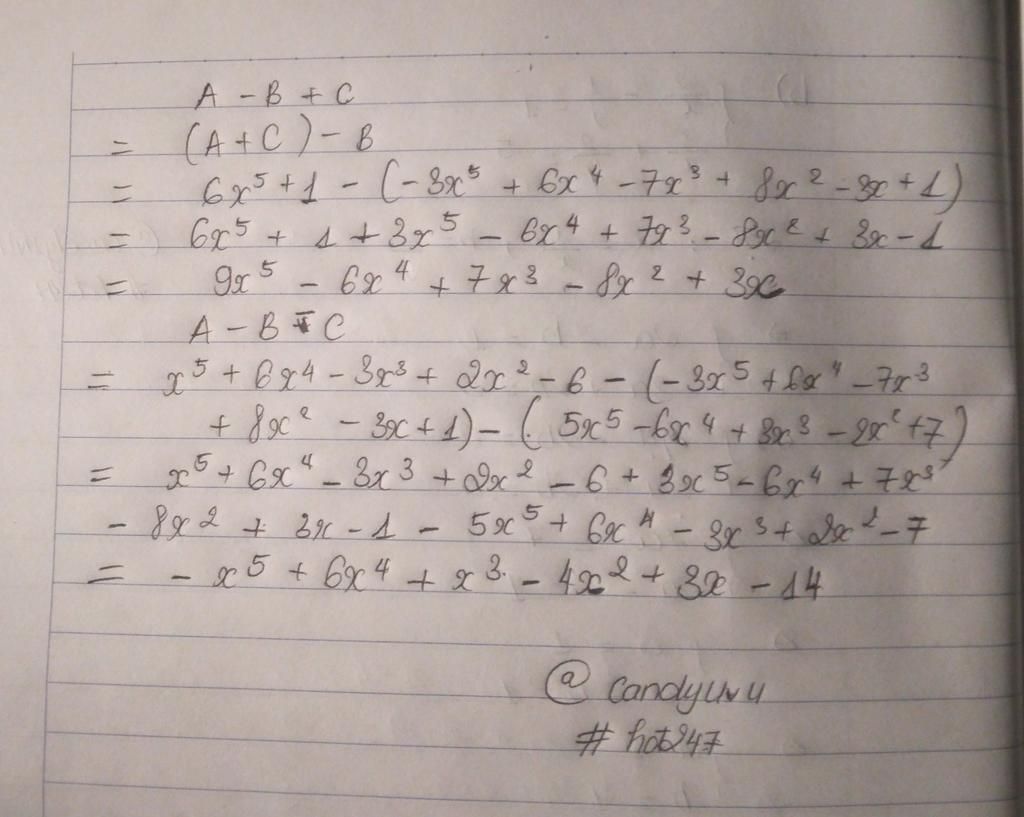 A - B + C
= (A + C) - B
= 6x⁵ + 1 - (-3x⁵ + 6x⁴ - 7x³ + 8x² - 3x + 1)
= 6x⁵ + 1 + 3x⁵ - 6x⁴ + 7x³ - 8x² + 3x - 1
= 9x⁵ - 6x⁴ + 7x³ - 8x² + 3x
A - B - C
= x⁵ + 6x⁴ - 3x³ + 2x² - 6 - (-3x⁵ + 6x⁴ - 7x³
+ 8x² - 3x + 1) - (5x⁵ - 6x⁴ + 3x³ - 2x² + 7)
= x⁵ + 6x⁴ - 3x³ + 2x² - 6 + 3x⁵ - 6x⁴ + 7x³
- 8x² + 3x - 1 - 5x⁵ + 6x⁴ - 3x³ + 2x² - 7
= - x⁵ + 6x⁴ + x³ - 4x² + 3x - 14
@ candyuvu
# hot247